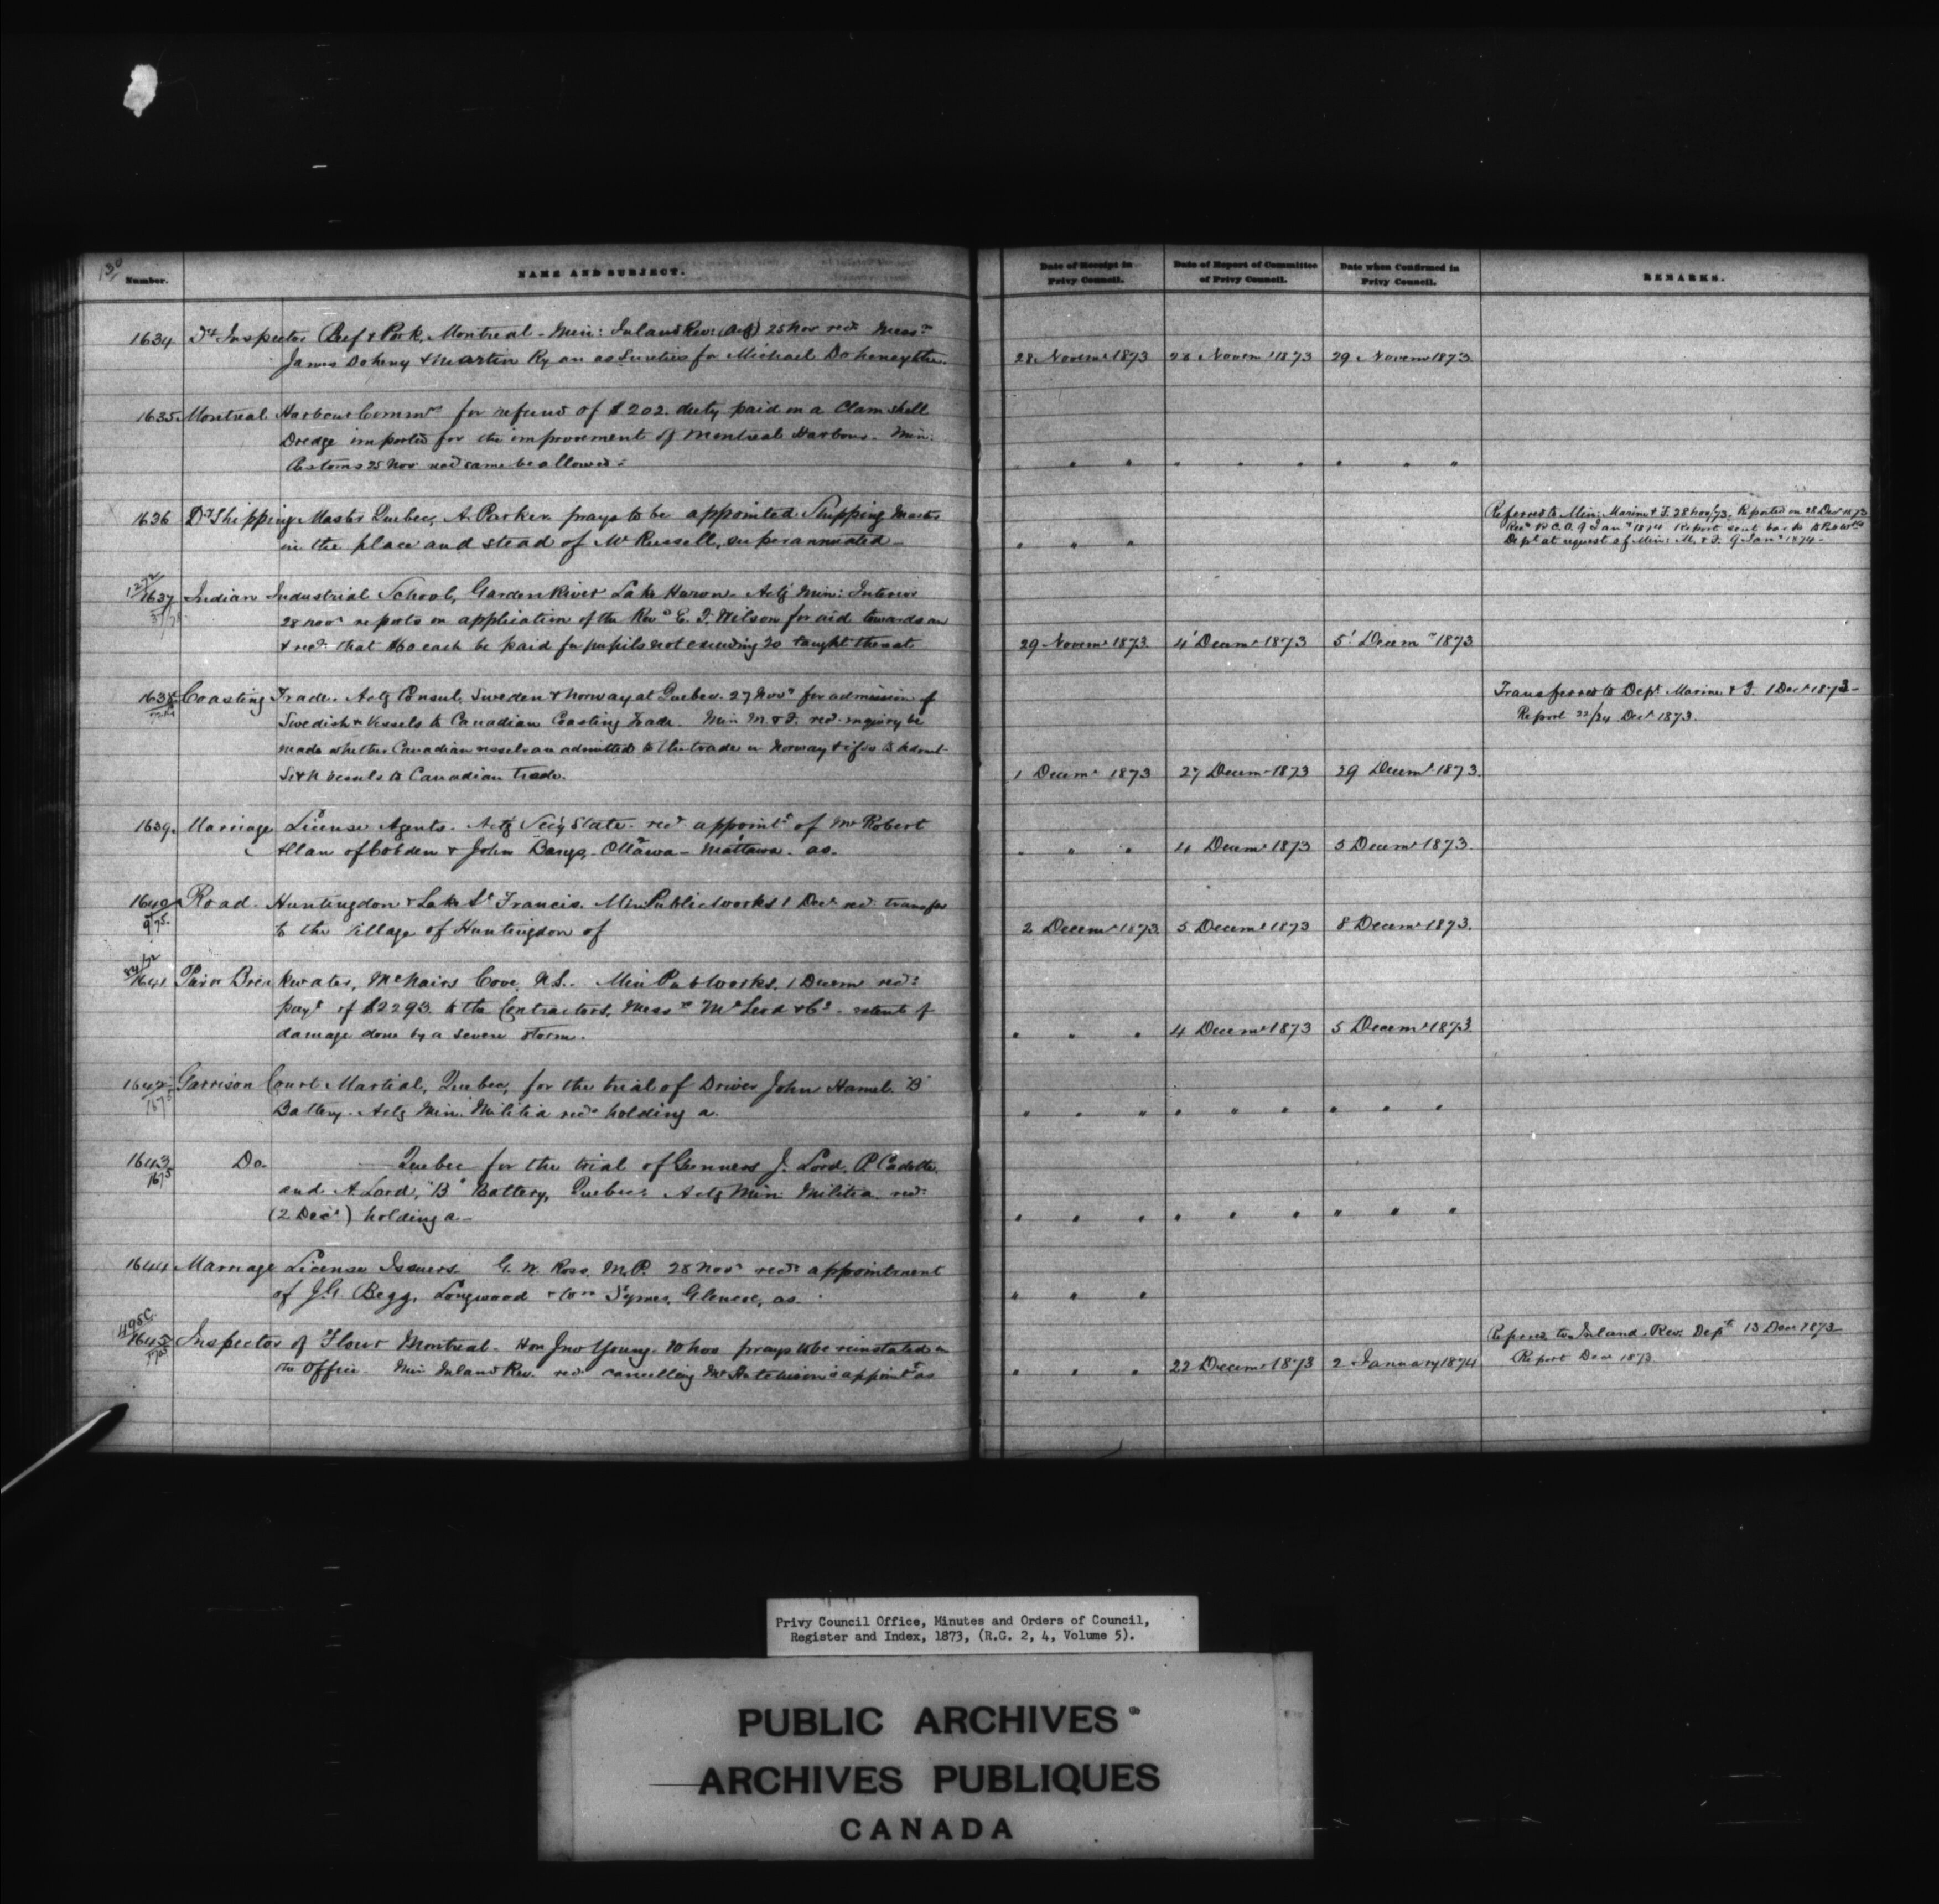 130
Number.
NAME AND SUBJECT.
Date of Receipt in Privy Council.
Date of Report of Committee of Privy Council.
Date when Confirmed in Privy Council.
REMARKS.
1634 Dy Inspector Beef & Pork, Montreal - Min: Inland Rev: (Actg) 25 Nov recd Messrs
James Doheny & Martin Ryan as Sureties for Michael Doheney the. 28 Novemr 1873 28 Novemr 1873 29 Novemr 1873.
1635 Montreal Harbour Commrs for refund of $202. duty paid on a Clam shell
Dredge imported for the improvement of Montreal Harbour. Min:
Customs 25 Nov recd same be allowed. " " " " " " " "
1636 Dy Shipping Master Quebec, A. Parker prays to be appointed Shipping Master
in the place and stead of Mr Russell, superannuated - " " "
Referred to Min: Marine & F. 28 Nov/73. Reported on 28 Decr 1873
Recd P.C.O. 9 Jany 1874 Report sent back to
Dept at request of Min: M. & F. 9 Jany 1874 -
1272
1637 Indian Industrial School, Garden River Lake Huron. Actg Min: Interior
28 Novr reports on application of the Revd E. F. Wilson for aid towards an
& recds that $60 each be paid for pupils not exceeding 20 taught thereat 29 Novemr 1873. 4 Decemr 1873 5 Decemr 1873
1638 Coasting Trade. Actg Consul, Sweden & Norway at Quebec. 27 Novr for admission of
Swedish & Vessels to Canadian Coasting Trade. Min M & F. recd inquiry be
made whether Canadian vessels are admitted to the trade in Norway & if so to admit
S & N vessels to Canadian trade. 1 Decemr 1873 27 Decemr 1873 29 Decemr 1873.
Transferred to Dept Marine & F. 1 Decr 1873 -
Report 22/24 Decr 1873.
1639. Marriage License Agents. Actg Secy State recd appointt of Mr Robert
Allan of Cobden & John Bangs, Ottawa - Mattawa. as. " " " 4 Decemr 1873 5 Decemr 1873.
1640 Road - Huntingdon & Lake St Francis. Min Public Works 1 Decr recd transfer
to the Village of Huntingdon of 2 Decemr 1873. 5 Decemr 1873 8 Decemr 1873.
1641 Pier Breakwater, McNairs Cove, N.S. Min Pub Works. 1 Decemr recds
payt of $2293. to the Contractors, Messrs McLeod & Co - extent of
damage done by a severe storm. " " " 4 Decemr 1873 5 Decemr 1873
1642 Garrison Court Martial, Quebec, for the trial of Driver John Hamel "B"
1675
Battery. Actg Min: Militia recds holding a. " " " " " " " " "
1643 Do. Quebec for the trial of Gunners J. Lord, P. Cadotte
1675
and A Lord, "B" Battery, Quebec. Actg Min: Militia recd:
(2 Decr) holding a - " " " " " " " " "
1644 Marriage License Issuers. G. W. Ross, M.P. 28 Novr recds appointment
of J.G. Begg, Longwood & Wm Symes, Glencoe, as. " " "
495c
1645 Inspector of Flour Montreal - Hon Jno Young. 10 Nov prays to be reinstated in
the Office. Min Inland Rev. recd cancelling Mr Hutchison's appointt as " " " 22 Decemr 1873 2 January 1874
Referred to Inland Rev. Dept 13 Decr 1873
Report Decr 1873
Privy Council Office, Minutes and Orders of Council,
Register and Index, 1873, (R.G. 2, 4, Volume 5).
PUBLIC ARCHIVES
ARCHIVES PUBLIQUES
CANADA